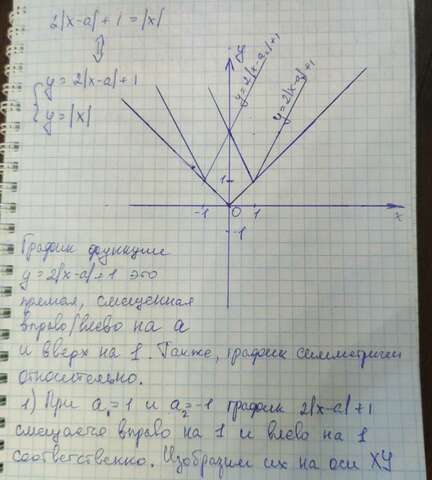 2|x-a|+1=|x|
⇕
{ y=2|x-a|+1
{ y=|x|
y
y=2|x-a₂|+1
y=2|x-a|+1
1
-1 0 1 x
-1
График функции
y=2|x-a|+1 это
прямая, смещенная
вправо/влево на a
и вверх на 1. Также, график симметричен
относительно.
1) При a₁=1 и a₂=-1 график 2|x-a|+1
смещается вправо на 1 и влево на 1
соответственно. Изобразим их на оси XY